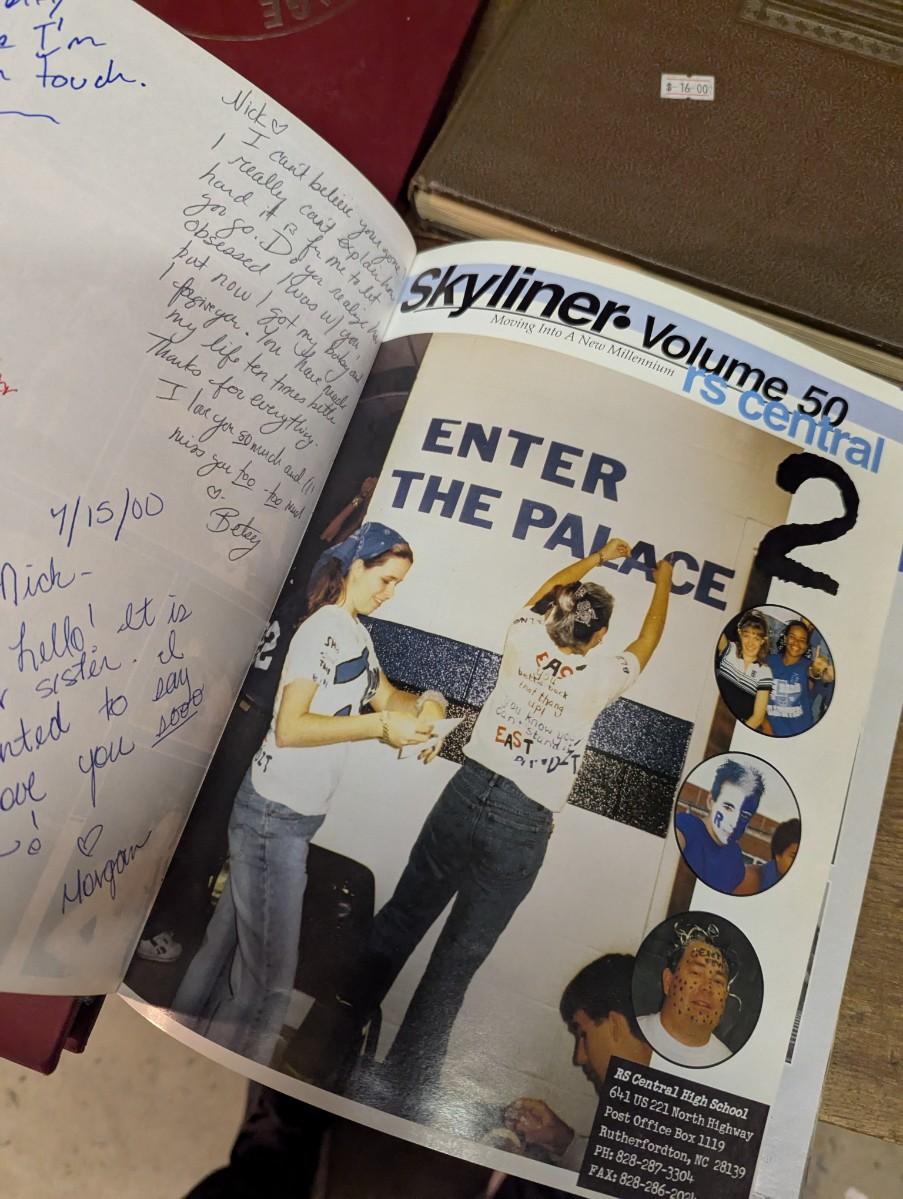 I'm
touch.
Nick ♡
I can't believe your gone
I really can't explain how
hard it is for me to let
you go. Do you realize how
obsessed I was w/ you
but now I got my baby and
forgiver. You have made
my life ten times better
Thanks for everything.
I love you so much and I'll
miss you too - too much
♡-
Betsy
7/15/00
Nick-
hello! It is
sister. I
to say
you sooo
♡
Morgan
$ 16 00
Skyliner • Volume 50
Moving Into A New Millennium
rs central
2
ENTER
THE PALACE
EAS
you
better back
that thang
up!
you know you
can't stand it
EAST
R
RS Central High School
641 US 221 North Highway
Post Office Box 1119
Rutherfordton, NC 28139
PH: 828-287-3304
FAX: 828-286-